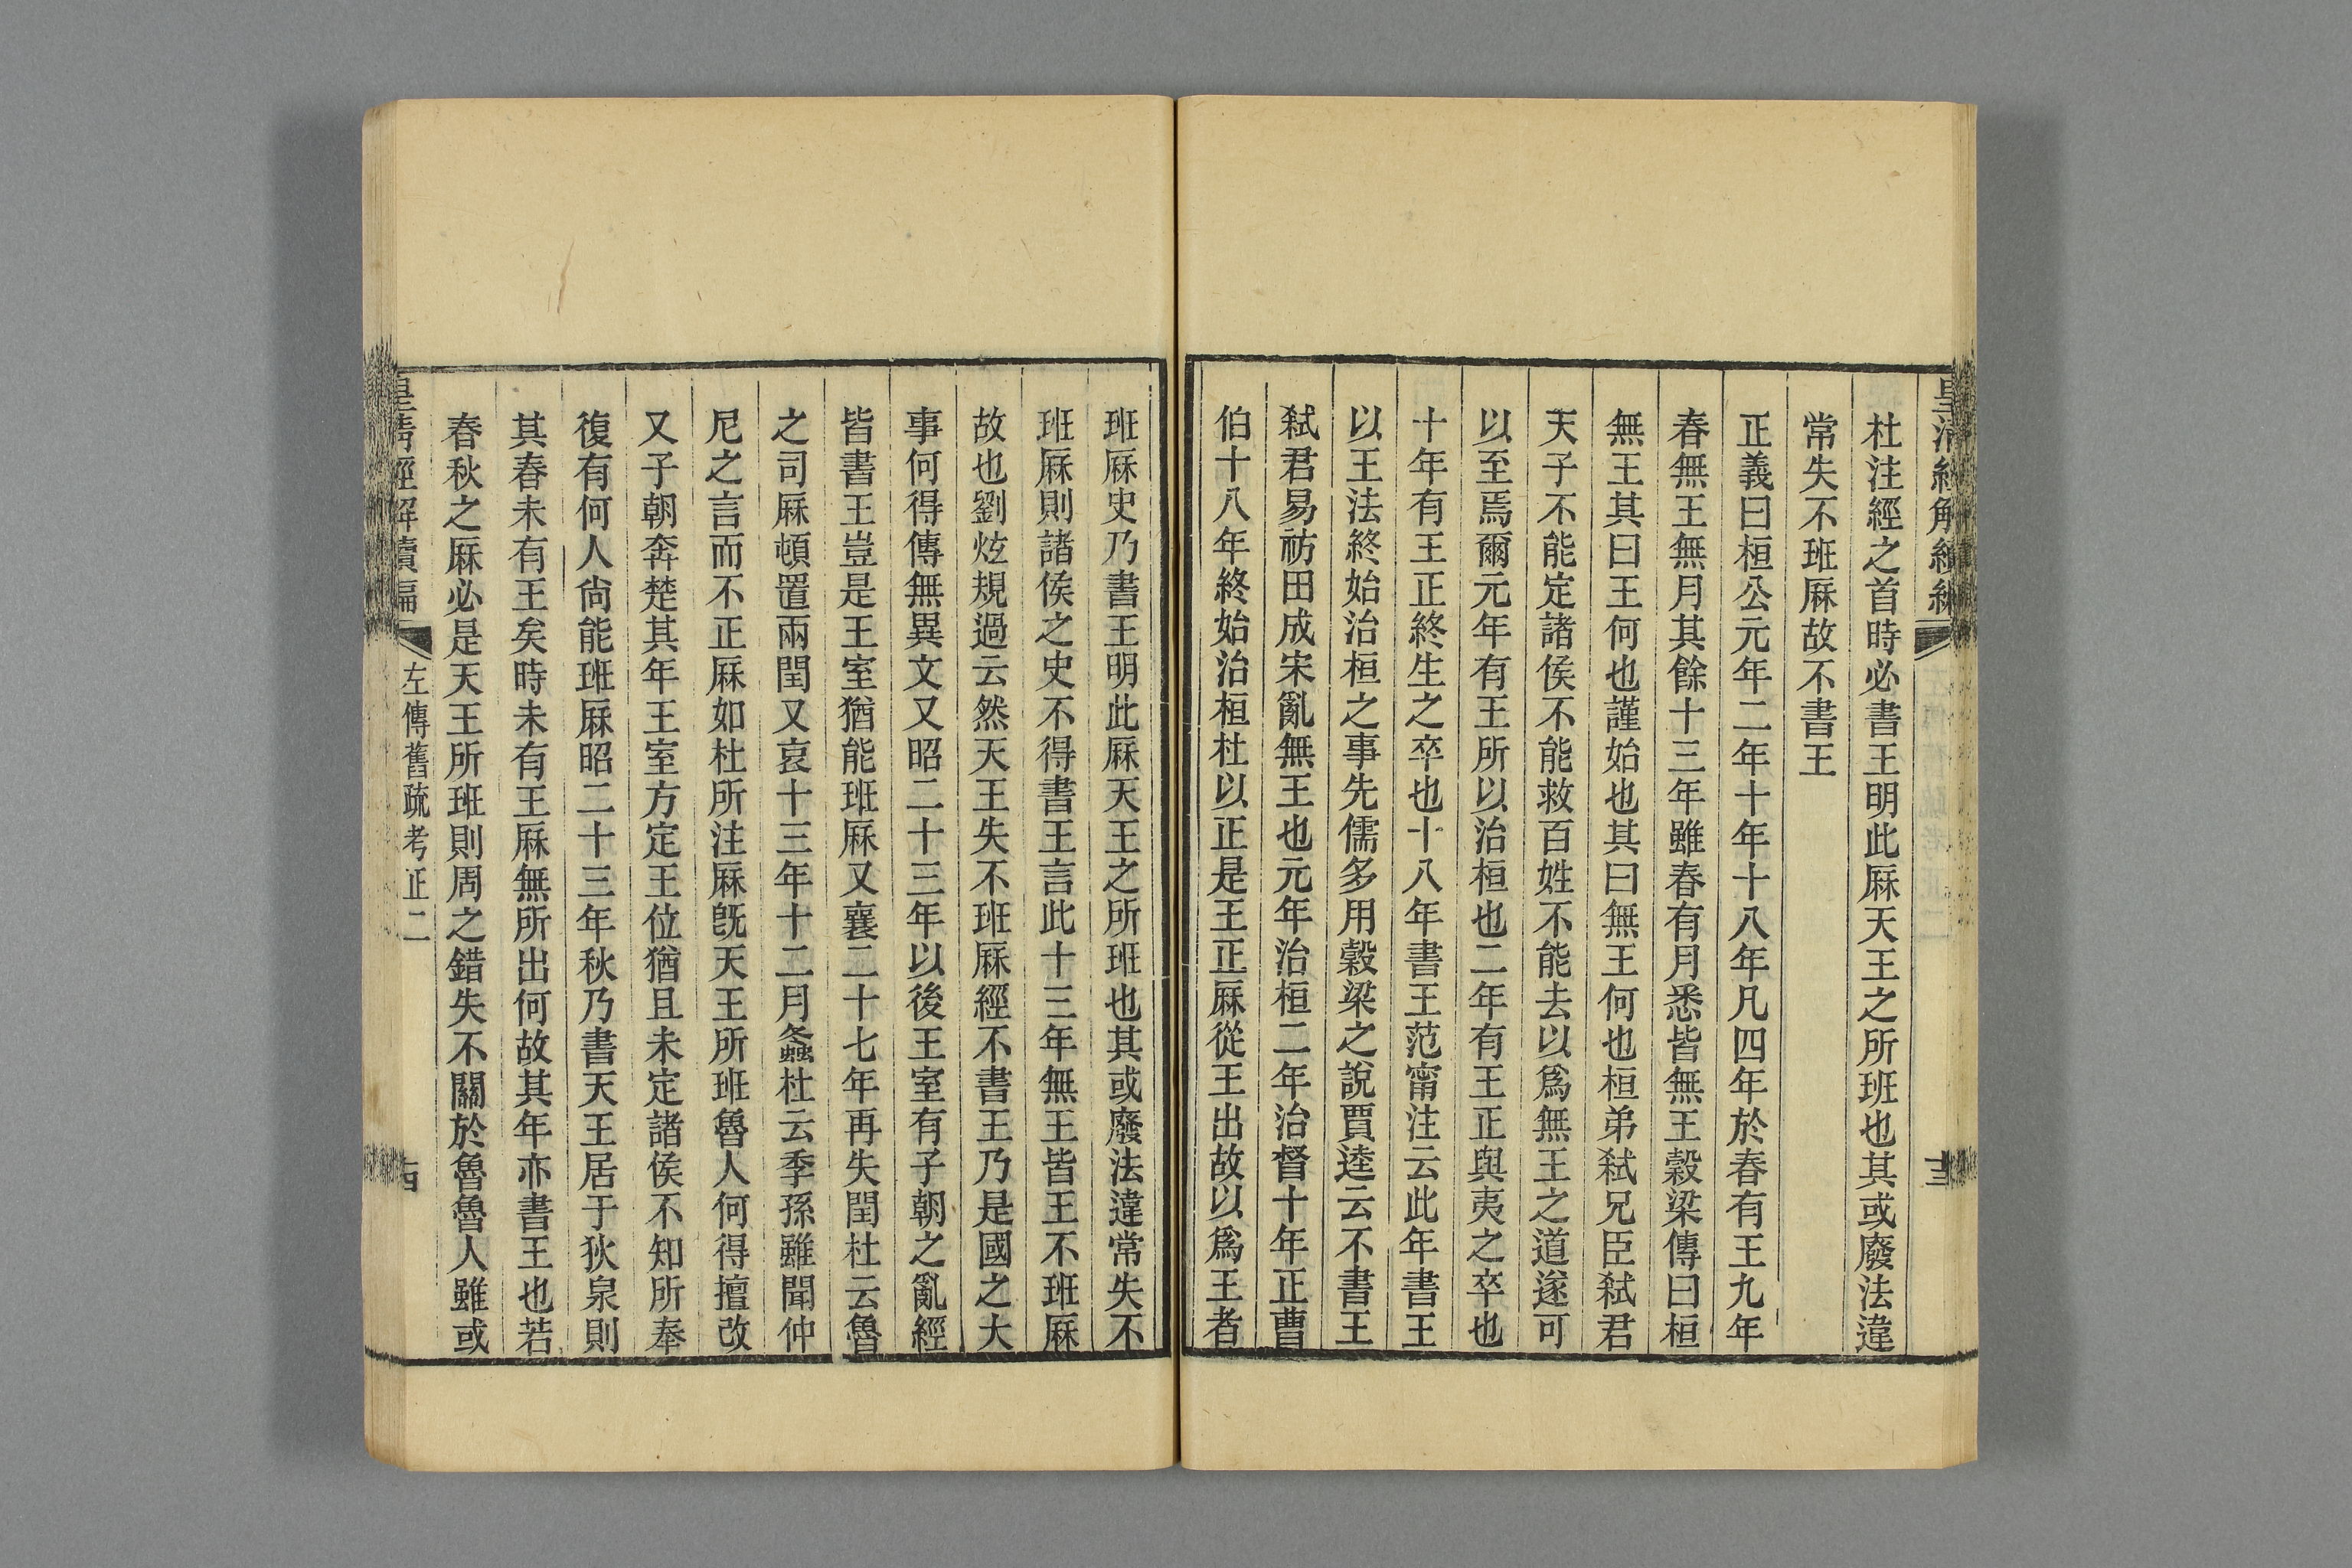 杜注經之首時必書王明此厤天王之所班也其或廢法違
常失不班厤故不書王
正義曰桓公元年二年十年十八年凡四年於春有王九年
春無王無月其餘十三年雖春有月悉皆無王穀梁傳曰桓
無王其曰王何也謹始也其曰無王何也桓弟弒兄臣弒君
天子不能定諸侯不能救百姓不能去以爲無王之道遂可
以至焉爾元年有王所以治桓也二年有王正與夷之卒也
十年有王正終生之卒也十八年書王范甯注云此年書王
以王法終始治桓之事先儒多用穀梁之說賈逵云不書王
弒君易祊田成宋亂無王也元年治桓二年治督十年正曹
伯十八年終始治桓杜以正是王正厤從王出故以爲王者
班厤史乃書王明此厤天王之所班也其或廢法違常失不
班厤則諸侯之史不得書王言此十三年無王皆王不班厤
故也劉炫規過云然天王失不班厤經不書王乃是國之大
事何得傳無異文又昭二十三年以後王室有子朝之亂經
皆書王豈是王室猶能班厤又襄二十七年再失閏杜云魯
之司厤頓置兩閏又哀十三年十二月螽杜云季孫雖聞仲
尼之言而不正厤如杜所注厤旣天王所班魯人何得擅改
又子朝奔楚其年王室方定王位猶且未定諸侯不知所奉
復有何人尙能班厤昭二十三年秋乃書天王居于狄泉則
其春未有王矣時未有王厤無所出何故其年亦書王也若
春秋之厤必是天王所班則周之錯失不關於魯魯人雖或
左傳舊疏考正二